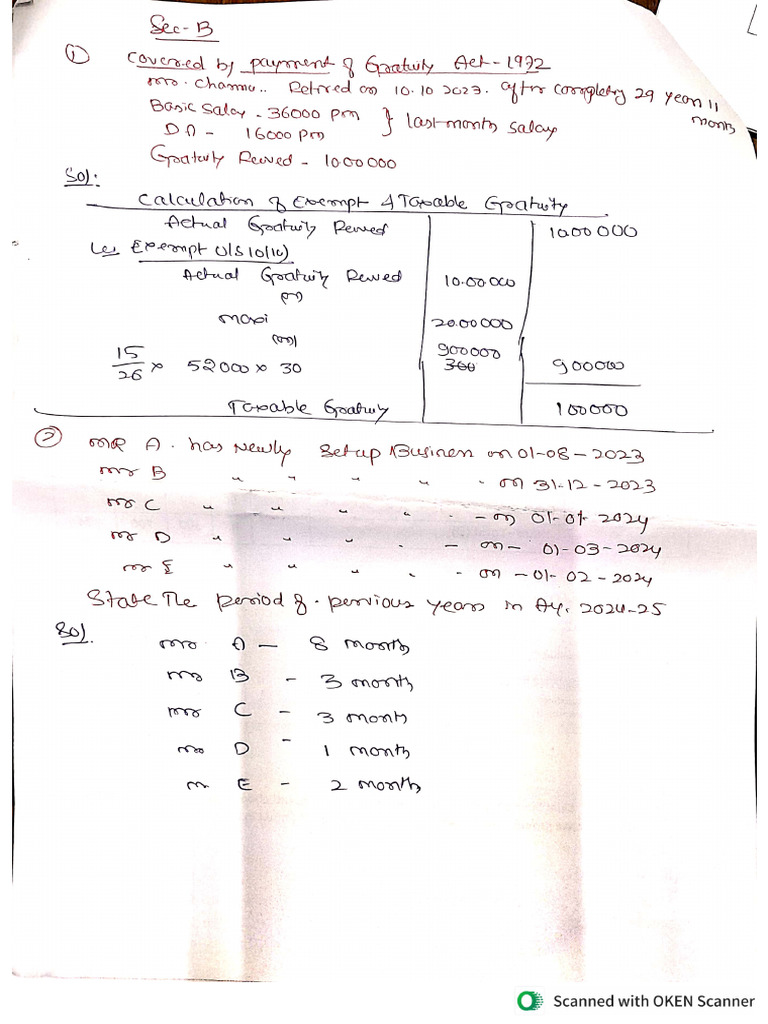 Sec-B
① Covered by payment of Gratuity Act-1972
Mr. Channu.. Retired on 10.10 2023. after completing 29 years 11 months
Basic Salay - 36000 pm } last month salay
DA - 16000 pm
Gratuity Reived - 1000000
Sol:
Calculation of Exempt & Taxable Gratuity
Actual Gratuity Reived 1000000
Les Exempt U/S 10(10)
Actual Gratuity Reived 10.00.000
(or)
maxi 20.00000
(or) 900000
15/26 × 52000 × 30 300 900000
Taxable Gratuity 100000
② MR A. has Newly Setup Business on 01-08-2023
Mr B " " " " - on 31-12-2023
Mr C " " " " - - on 01-01-2024
Mr D " " " - - on - 01-03-2024
Mr E " " " - - on - 01-02-2024
State The period of pervious years in Ay. 2024-25
Sol.
Mr A - 8 month
Mr B - 3 month
Mr C - 3 month
Mr D - 1 month
m E - 2 month
Scanned with OKEN Scanner